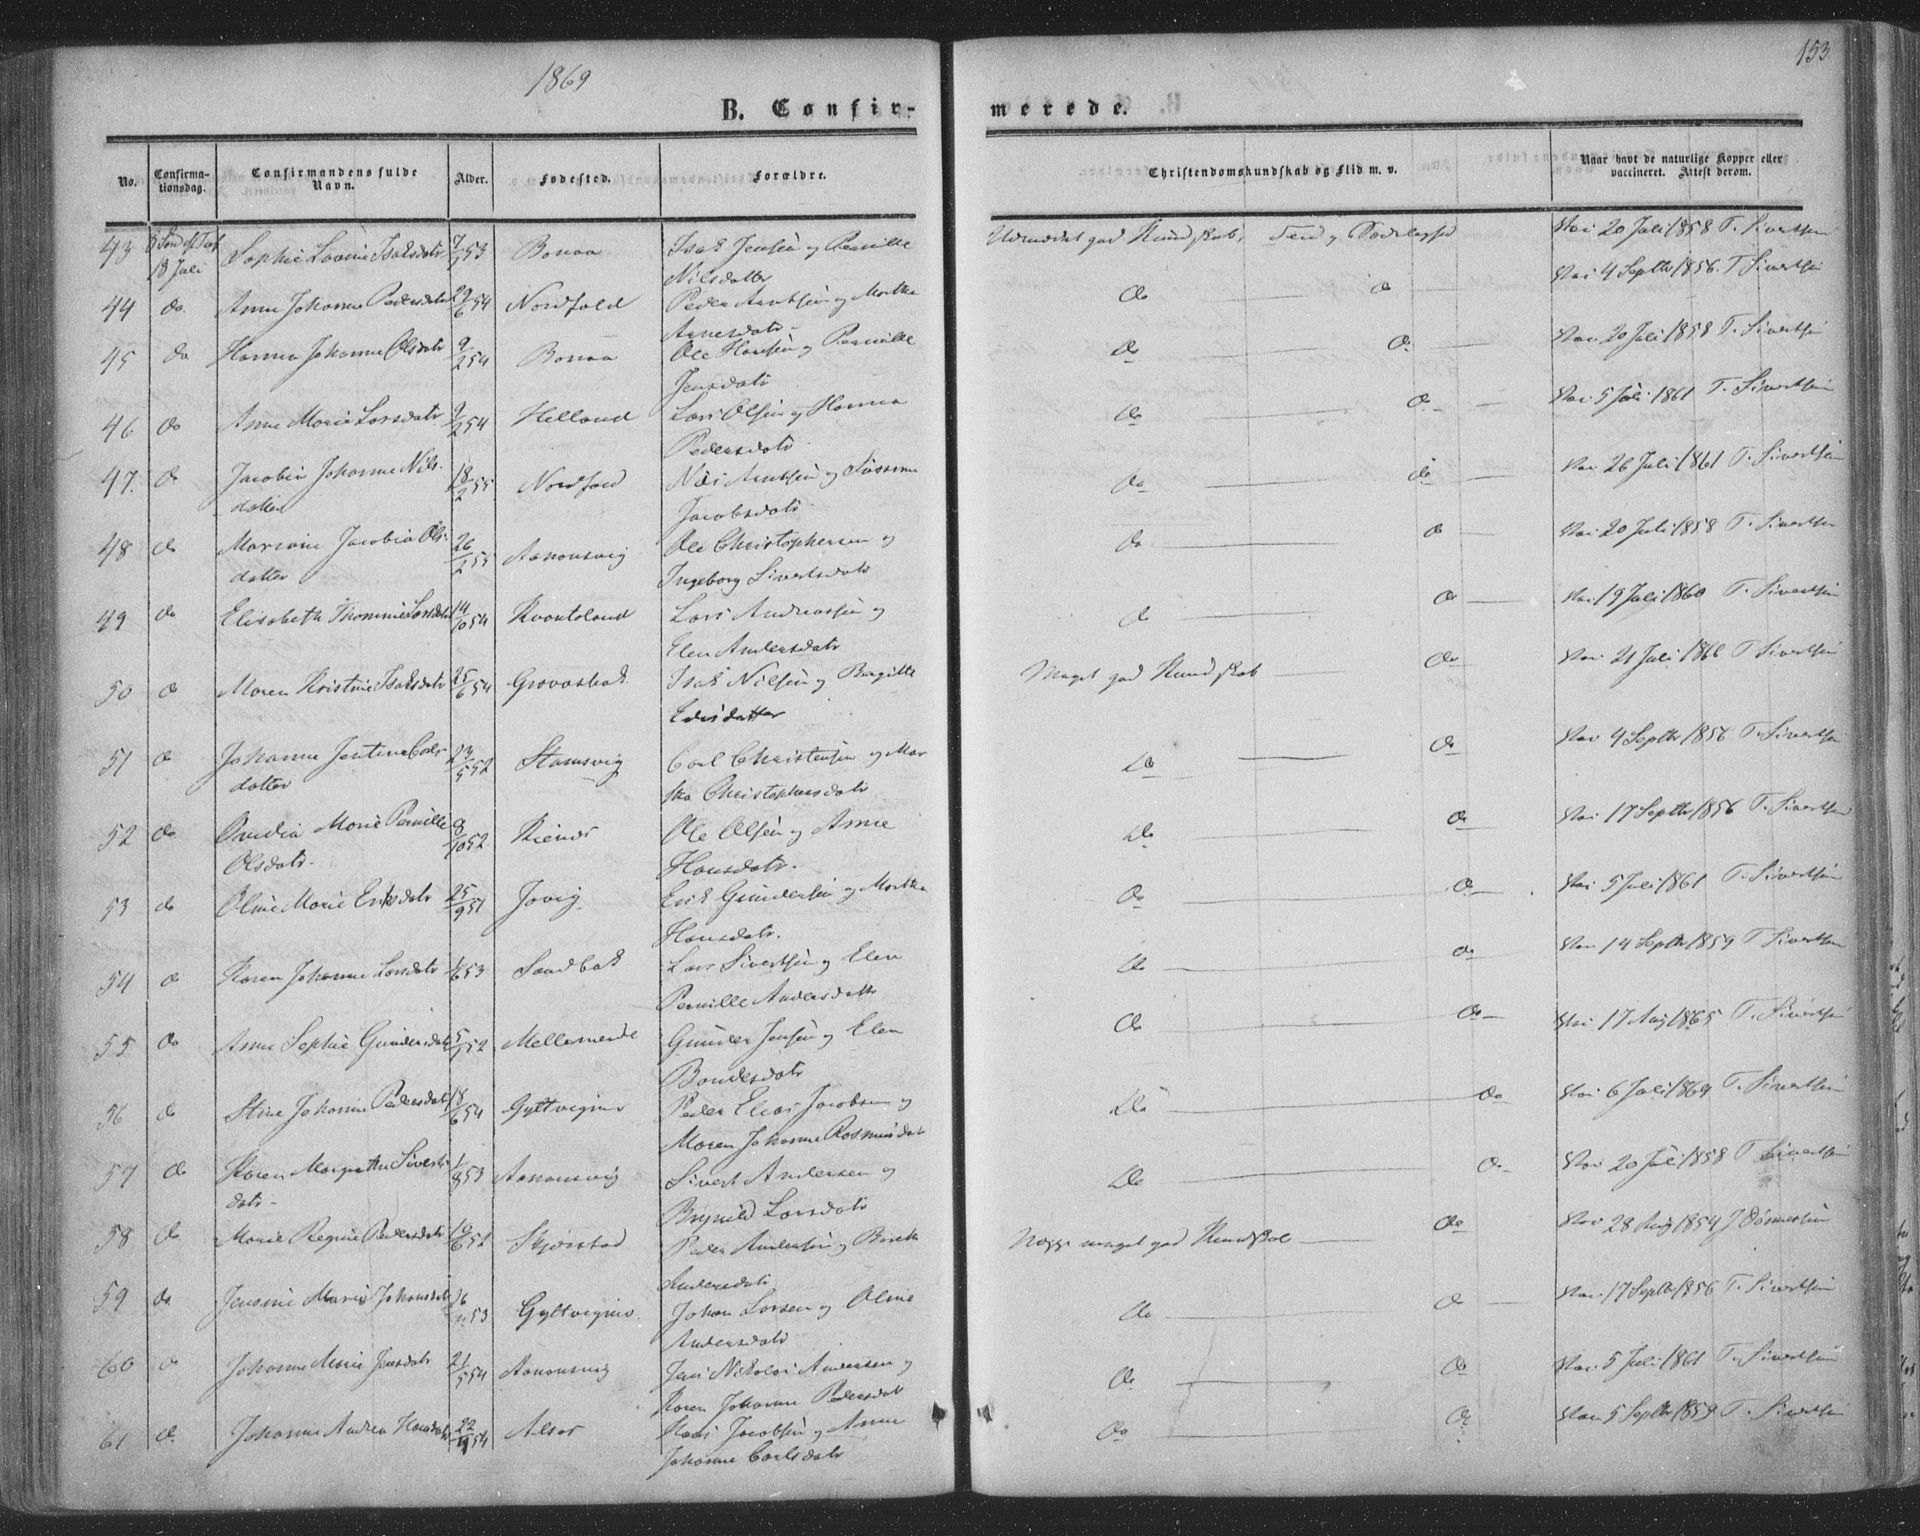 1869
153
B. Confir-
merede.
No.
Confirma-
tionsdag.
Confirmandens fulde
Navn.
Alder.
Fødested.
Forældre.
Christendomskundskab og Flid m. v.
Naar havt de naturlige Kopper eller
vaccineret. Attest derom.
43 18 Juli Sophie Lovine Isaksdatr 53 Bonaa Isak Jensen og Pernille
Nilsdatter
god Kundskab, 20 Juli 1858 T. Sivertsen
44 do Anne Johanne Pedersdatr 29/6 54 Nordfold Peder Arntsen og Martha
Arnesdatr
do do 4 Septbr 1856 T. Sivertsen
45 do Hanna Johanne Olsdatr 9/2 54 Bonaa Ole Hansen og Pernille
Jensdatr
do do 20 Juli 1858 T. Sivertsen
46 do Anne Marie Larsdatr 9/2 54 Helland Lars Olsen og Hanna
Pedersdatr
do do 5 Juli 1861 T. Sivertsen
47. do Jacobia Johanne Nils-
datter
18/2 55 Nordfold Arntsen og
Jacobsdatr
do do 26 Juli 1861 T. Sivertsen
48 do Jacobia Ols-
datter
26/2 55 Aanonsvig Ole Christophersen og
Ingeborg Sivertsdatr
do do 20 Juli 1858 T. Sivertsen
49 do Elisabeth Larsdatr 14/10 54 Kvantoland Lars Andreassen og
Elen Andersdatr
do do 19 Juli 1860 T. Sivertsen
50 do Maren Kristine Isaksdatr 25/6 54 Grovasbak Isak Nilsen og Birgitte
Meget god Kundskab do 21 Juli T. Sivertsen
51 do Johanne Jentine Carls-
datter
23/5 52 Stamsvig Carl Christensen og Mar
tha Christophersdatr
do do 4 Septbr 1856 T. Sivertsen
52 do Marie Pernille
Olsdatr.
8/10 52 Ole Olsen og Anne
Hansdatr.
do do 17 Septbr 1856 T. Sivertsen
53 do Oline Marie Eriksdatr 25/9 51 Jovig Erik Gundersen og Martha
Hansdatr.
do do 5 Juli 1861 T. Sivertsen
54 do Karen Johanne Larsdatr 53 Sandbak Lars Sivertsen og Elen
Pernille Andersdatr
do do 14 Septbr 1859 T. Sivertsen
55 do Anne Sophie Gundersdatr 52 Mellemeide Gunder Jensen og Elen
do do 17 Aug 1865 T. Sivertsen
56 do Stine Johanne Pedersdatr 18/6 54 Gyltvignes Peder Elias Jacobsen og
Maren Johanne Rasmusdatr
do do 6 Juli 1869 T. Sivertsen
57 do Karen Margrethe Siverts
datr
1/8 53 Aanonsvig Sivert Andersen og
Brynild Larsdatr
do do 20 Juli 1858 T. Sivertsen
58 do Marie Regine Pedersdatr Skjørstad Peder Andersen og
Andersdatr
meget god Kundskab do 28 Aug 1854
59 do Jensine Marie Johansdatr 26/11 53 Gyltvignes Johan Larsen og Oline
Andersdatr
do do 17 Septbr 1856 T. Sivertsen
60 do Johanne Marie Jensdatr 21/5 54 Aanonsvig Jens Nikolai Andersen og
Karen Johanne Pedersdatr
do do 5 Juli 1861 T. Sivertsen
61 do Johanne Andrea Hansdatr 54 Alsos Hans Jacobsen og Anne
Johanne Carlsdatr
do do 5 Septbr 1859 T. Sivertsen